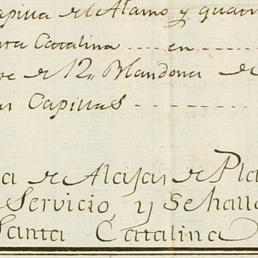 apilla de Alamo y guar
ta Catalina .... en ....
re de 12,, Blandones de
as Capillas
a de Alajas de Pla
Servicio, y Se halla
Santa Catalina